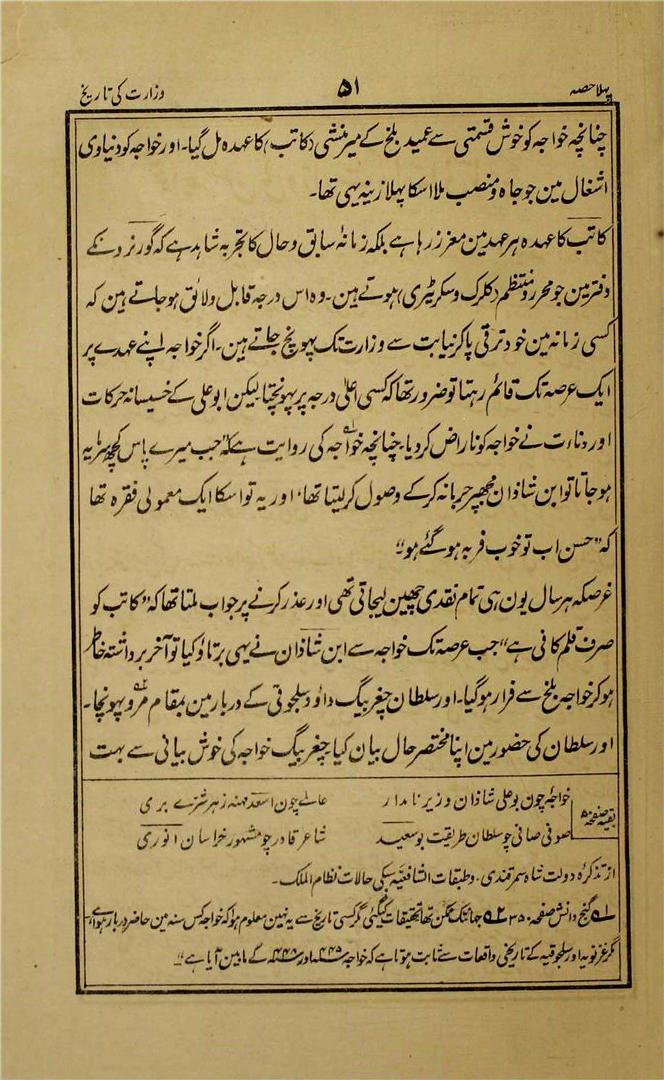 پہلا حصہ ۵۱ وزارت کی تاریخ
چنانچہ خواجہ کو خوش قسمتی سے عمید بلخ کے میر منشی (کاتب) کا عہدہ مل گیا۔ اور خواجہ کو دنیاوی
اشغال مین جو جاہ و منصب ملا اسکا پہلا زینہ یہی تھا۔
کاتب کا عہدہ ہر عہد مین معزز رہا ہے بلکہ زمانۂ سابق و حال کا تجربہ شاہد ہے کہ گورنرونکے
دفتر مین جو محرر و منتظم (کلرک و سکرٹیری) ہوتے ہین۔ وہ اس درجہ قابل ولائق ہو جاتے ہین کہ
کسی زمانہ مین خود ترقی پاکر نیابت سے وزارت تک پہونچ جاتے ہین۔ اگر خواجہ اپنے عہدے پر
ایک عرصہ تک قائم رہتا تو ضرور تھا کہ کسی اعلیٰ درجہ پر پہونچتا لیکن ابو علی کے خسیسانہ حرکات
اور دناءت نے خواجہ کو ناراض کر دیا۔ چنانچہ خواجہ کی روایت ہے کہ "جب میرے پاس کچھ سرمایہ
ہو جاتا تو ابن شاذان مجھپر جرمانہ کرکے وصول کر لیتا تھا، اور یہ تو اسکا ایک معمولی فقرہ تھا
کہ "حسن اب تو خوب فربہ ہو گئے ہو"
غرضکہ ہر سال یون ہی تمام نقدی چھین لیجاتی تھی اور عذر کرنے پر جواب ملتا تھا کہ "کاتب کو
صرف قلم کافی ہے" جب عرصہ تک خواجہ سے ابن شاذان نے یہی برتاؤ کیا تو آخر برداشتہ خاطر
ہو کر خواجہ بلخ سے فرار ہو گیا۔ اور سلطان چغر بیگ داؤد سلجوقی کے دربار مین بمقام مرو پہونچا۔
اور سلطان کی حضور مین اپنا مختصر حال بیان کیا، چغر بیگ خواجہ کی خوش بیانی سے بہت
بقیہ صفحہ ۵۰
خواجۂ چون بو علی شاذان وزیر نامدار عالمے چون اسعد مہنہ زہر شرے بری
صوفی صافی چو سلطان طریقت بو سعید شاعر قادر چو مشہور خراسان انوری
از تذکرۂ دولت شاہ سمرقندی۔ و طبقات الشافعیہ سبکی حالات نظام الملک۔
۱؎ گنج دانش صفحہ ۳۵۰ ۲؎ جہانتک ممکن تھا تحقیقات کیگئی مگر کسی تاریخ سے یہ نہین معلوم ہوا کہ خواجہ کس سنہ مین حاضر دربار ہوا ہے،
مگر غزنویہ اور سلجوقیہ کے تاریخی واقعات سے ثابت ہوتا ہے کہ خواجہ ۴۴۵ اور ۴۴۸ کے مابین آیا ہے"